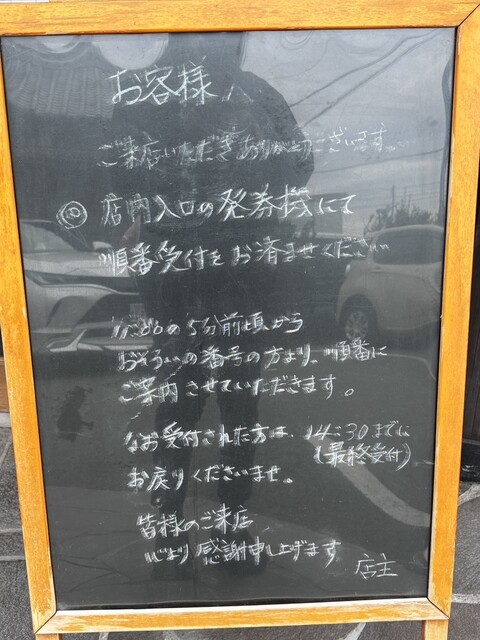 お客様へ
ご来店いただきありがとうございます。
◎ 店内入口の発券機にて
順番受付をお済ませください
11:00の5分前頃から
おそろいの番号の方より、順番に
ご案内させていただきます。
なお受付された方は、14:30までに
(最終受付)
お戻りくださいませ。
皆様のご来店
心より感謝申し上げます
店主